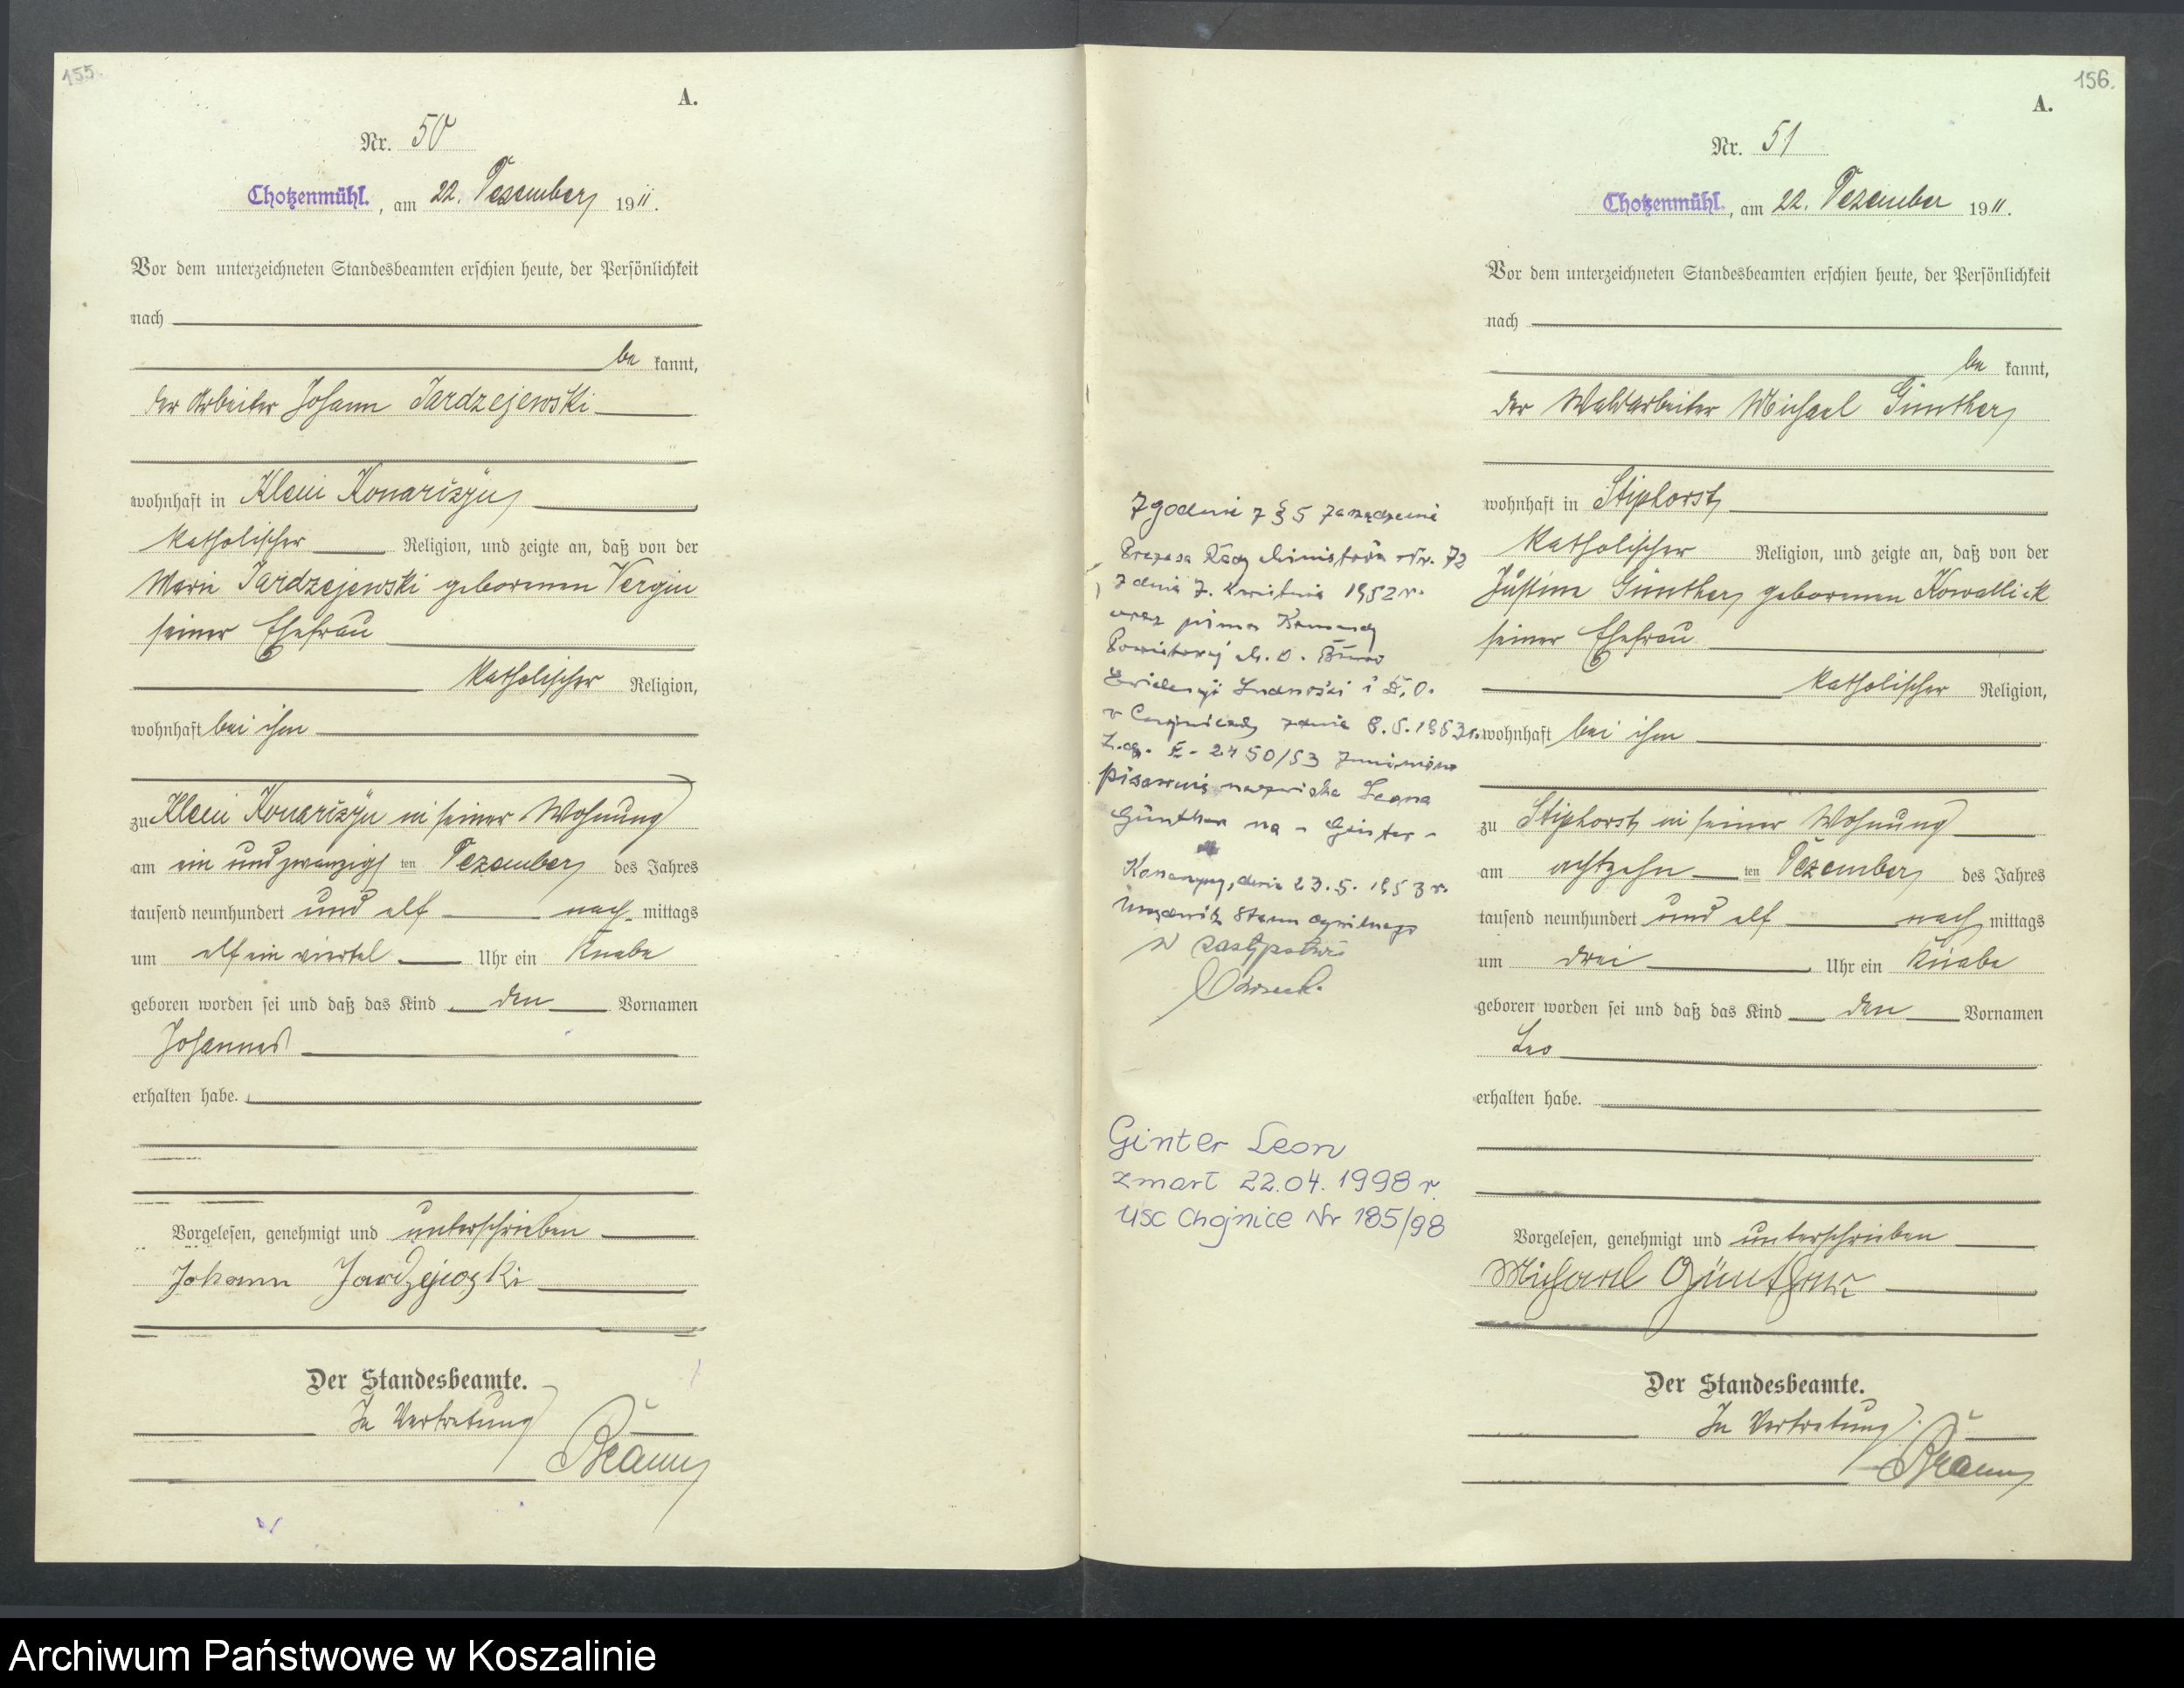 155.
A.
Nr. 50
Chotzenmühl., am 22. Dezember 1911.
Vor dem unterzeichneten Standesbeamten erschien heute, der Persönlichkeit
nach
be kannt,
der Arbeiter Johann Jardzejewski
wohnhaft in Klein Konarczyn
katholischer Religion, und zeigte an, daß von der
Marie Jardzejewski geborenen Vergin
seiner Ehefrau
katholischer Religion,
wohnhaft bei ihm
zu Klein Konarczyn in seiner Wohnung
am ein und zwanzigsten Dezember des Jahres
tausend neunhundert und elf nach mittags
um elf ein viertel Uhr ein Knabe
geboren worden sei und daß das Kind den Vornamen
Johannes
erhalten habe.
Vorgelesen, genehmigt und unterschrieben
Johann Jardzejewski
Der Standesbeamte.
In Vertretung
156.
A.
Nr. 51
Chotzenmühl., am 22. Dezember 1911.
Vor dem unterzeichneten Standesbeamten erschien heute, der Persönlichkeit
nach
be kannt,
der Waldarbeiter Michael Günther
wohnhaft in Stiphorst
katholischer Religion, und zeigte an, daß von der
Justine Günther geborenen Kowallick
seiner Ehefrau
katholischer Religion,
wohnhaft bei ihm
zu Stiphorst in seiner Wohnung
am achtzehnten Dezember des Jahres
tausend neunhundert und elf nach mittags
um drei Uhr ein Knabe
geboren worden sei und daß das Kind den Vornamen
Leo
erhalten habe.
Vorgelesen, genehmigt und unterschrieben
Michael Günther
Der Standesbeamte.
In Vertretung
Zgodnie z § 5 zarządzenia
Prezesa Rady Ministrów Nr. 72
z dnia 7. kwietnia 1952 r.
oraz pisma Komendy
Powiatowej M. O. Biuro
Ewidencji Ludności i D. O.
w Chojnicach z dnia 8. 5. 1953 r.
2450/53 zmieniono
pisownię nazwiska Leona
Günther na - Ginter -
Konarzyny, dnia 23. 5. 1953 r.
Urzędnik Stanu Cywilnego
w zastępstwie
Ginter Leon
zmarł 22.04.1998 r.
USC Chojnice Nr 185/98
Archiwum Państwowe w Koszalinie